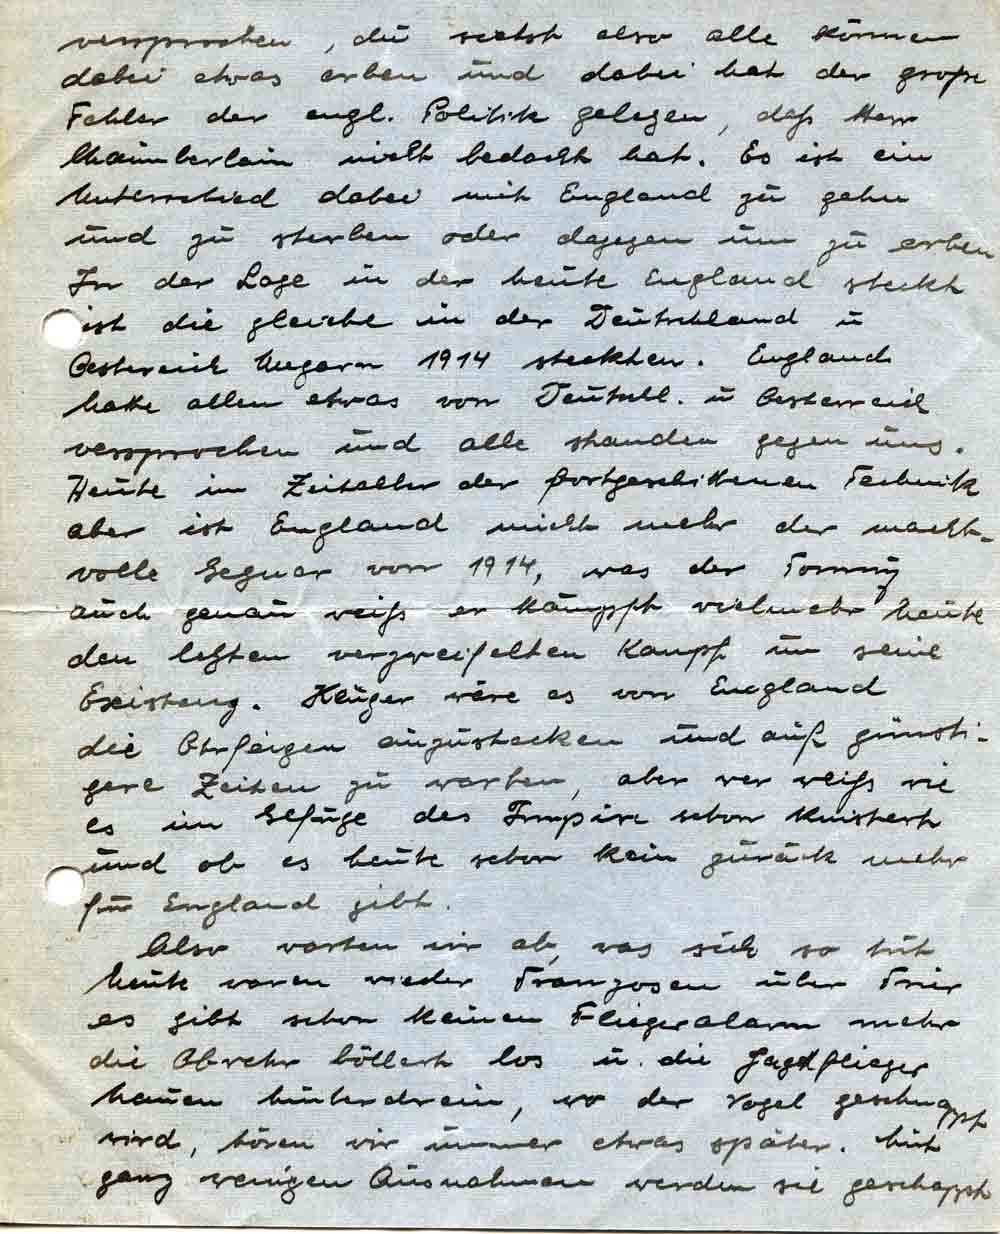 versprochen, du siehst also alle können
dabei etwas erben und dabei hat der große
Fehler der engl. Politik gelegen, daß Herr
Chaimberlain nicht bedacht hat. Es ist ein
Unterschied dabei mit England zu gehn
und zu sterben oder dagegen um zu erben
In der Lage in der heute England steckt
ist die gleiche in der Deutschland u
Oestereich Ungarn 1914 steckten. England
hatte allen etwas von Deutschl. u Oesterreich
versprochen und alle standen gegen uns.
Heute im Zeitalter der fortgeschittenen Technik
aber ist England nicht mehr der macht-
volle Gegner von 1914, was der Tommy
auch genau weiß er kämpft vielmehr heute
den letzten verzweifelten Kampf um seine
Existenz. Klüger wäre es von England
die Ohrfeigen einzustecken und auf günsti-
gere Zeiten zu warten, aber wer weiß wie
es im Gefüge des Impire schon knistert
und ob es heute schon kein zurück mehr
für England gibt.
Also warten wir ab, was sich so tut
heute waren wieder Franzosen über Trier
es gibt schon keinen Fliegeralarm mehr
die Abwehr böllert los u. die Jagdflieger
hauen hinterdrein, wo der Vogel geschnappt
wird, hören wir immer etwas später. Mit
ganz wenigen Ausnahmen werden sie geschnappt